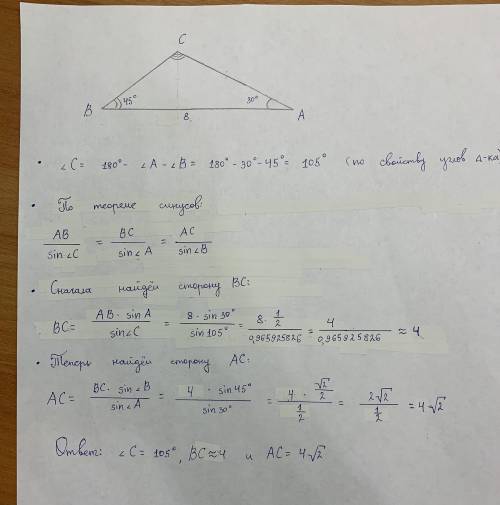 C
B 45° 8 30° A
• ∠C = 180° - ∠A - ∠B = 180° - 30° - 45° = 105° (по свойству углов Δ-ка)
• По теореме синусов:
AB / sin∠C = BC / sin∠A = AC / sin∠B
• Сначала найдём сторону BC:
BC = AB · sinA / sin∠C = 8 · sin30° / sin105° = 8 · 1/2 / 0,965925826 = 4 / 0,965925826 ≈ 4
• Теперь найдём сторону AC:
AC = BC · sin∠B / sin∠A = 4 · sin45° / sin30° = 4 · √2/2 / 1/2 = 2√2 / 1/2 = 4√2
Ответ: ∠C = 105°, BC ≈ 4 и AC = 4√2